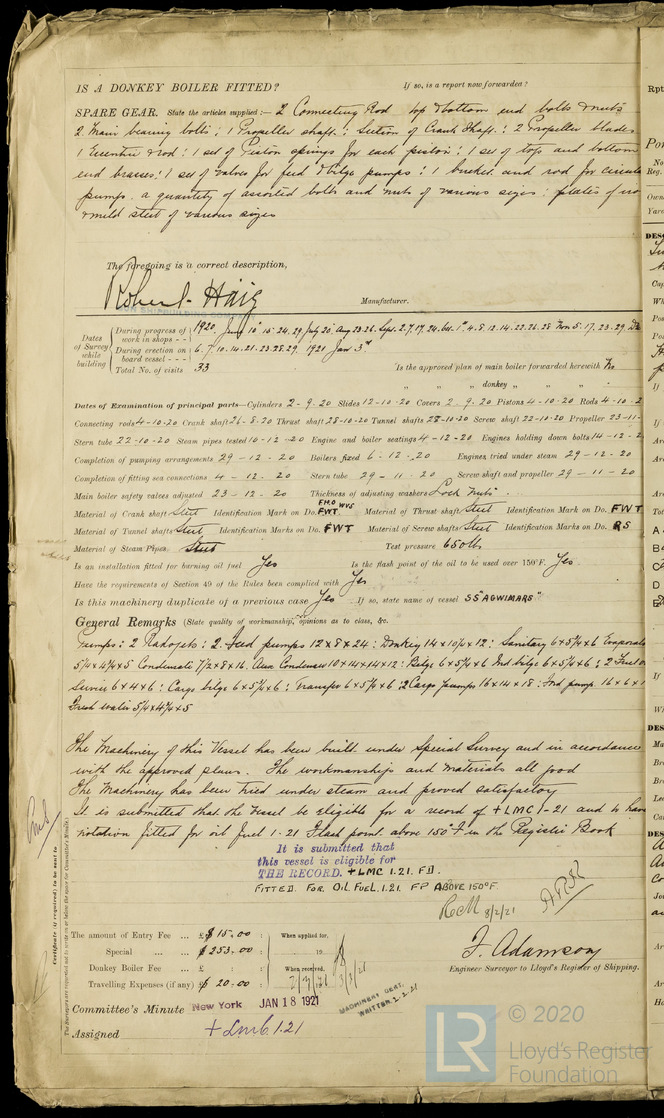 IS A DONKEY BOILER FITTED? If so, is a report now forwarded?
SPARE GEAR. State the articles supplied:— 2 Connecting Rod top & bottom end bolts & nuts
2 Main bearing bolts; 1 Propeller shaft; Section of Crank Shaft; 2 Propeller blades
1 Eccentric rod; 1 set of Piston springs for each piston; 1 set of top and bottom
end brasses; 1 set of valves for feed & bilge pumps; 1 bucket and rod for
pumps. a quantity of assorted bolts and nuts of various sizes; plates of
& mild steel of various sizes
The foregoing is a correct description,
Robert Haig
Manufacturer.
Dates of Survey while building
During progress of work in shops - - 1920, 15. 24. 29 July 20 Aug 23. 26 Sept. 2. 7. 17. 24. Oct. 1st. 4. 8. 12. 14. 22. 26. 28 Nov 5. 17. 23. 29.
During erection on board vessel - - - 6. 7. 10. 14. 21. 23. 28. 29. 1921 Jan 3rd
Total No. of visits 33
Is the approved plan of main boiler forwarded herewith No
" " " donkey " " "
Dates of Examination of principal parts—Cylinders 2-9-20 Slides 12-10-20 Covers 2-9-20 Pistons 4-10-20 Rods 4-10-2
Connecting rods 4-10-20 Crank shaft 26-8-20 Thrust shaft 28-10-20 Tunnel shafts 28-10-20 Screw shaft 22-10-20 Propeller 23-11-
Stern tube 22-10-20 Steam pipes tested 10-12-20 Engine and boiler seatings 4-12-20 Engines holding down bolts 14-12-2
Completion of pumping arrangements 29-12-20 Boilers fixed 6-12-20 Engines tried under steam 29-12-20
Completion of fitting sea connections 4-12-20 Stern tube 29-11-20 Screw shaft and propeller 29-11-20
Main boiler safety valves adjusted 23-12-20 Thickness of adjusting washers Lock Nuts
Material of Crank shaft Steel Identification Mark on Do. FHO WVS FWT Material of Thrust shaft Steel Identification Mark on Do. FWT
Material of Tunnel shafts Steel Identification Marks on Do. FWT Material of Screw shafts Steel Identification Marks on Do. RS
Material of Steam Pipes Steel Test pressure 650 lbs
Is an installation fitted for burning oil fuel Yes Is the flash point of the oil to be used over 150°F. Yes
Have the requirements of Section 49 of the Rules been complied with Yes
Is this machinery duplicate of a previous case Yes If so, state name of vessel SS "AGWIMARS"
General Remarks (State quality of workmanship, opinions as to class, &c.
Pumps: 2 Radojets: 2 Feed pumps 12 x 8 x 24: Donkey 14 x 10½ x 12: Sanitary 6 x 5¾ x 6
5¼ x 4¾ x 5 Condensate 7½ x 8 x 16. Aux Condenser 10 x 14 x 14 x 12: Bilge 6 x 5¾ x 6 Ind bilge 6 x 5¾ x 6: 2 Fuel
Service 6 x 4 x 6: Cargo bilge 6 x 5¾ x 6: Transfer 6 x 5¾ x 6: 2 Cargo pumps 16 x 14 x 18: pump. 16 x 6 x 1
Fresh water 5¼ x 4¾ x 5
The Machinery of this Vessel has been built under Special Survey and in accordance
with the approved plans. The workmanship and materials all good
The Machinery has been tried under steam and proved satisfactory
It is submitted that the Vessel be eligible for a record of +LMC 1-21 and to have
notation fitted for oil fuel 1.21 Flash point above 150°F in the Register Book
It is submitted that
this vessel is eligible for
THE RECORD. +LMC 1.21. FD.
FITTED FOR OIL FUEL 1.21. FP ABOVE 150°F.
8/2/21
Certificate (if required) to be sent to
The Surveyors are requested not to write on or below the space for Committee's Minute.
The amount of Entry Fee ... £ $15.00 : When applied for,
Special ... ... £ $253.00 : 19
Donkey Boiler Fee ... £ : When received,
Travelling Expenses (if any) £ $20.00 :
F. Adamson
Engineer Surveyor to Lloyd's Register of Shipping.
Committee's Minute New York JAN 18 1921
MACHINERY CERT. WRITTEN 2-2-21
Assigned + LMC 1.21
LR
© 2020
Lloyd's Register
Foundation